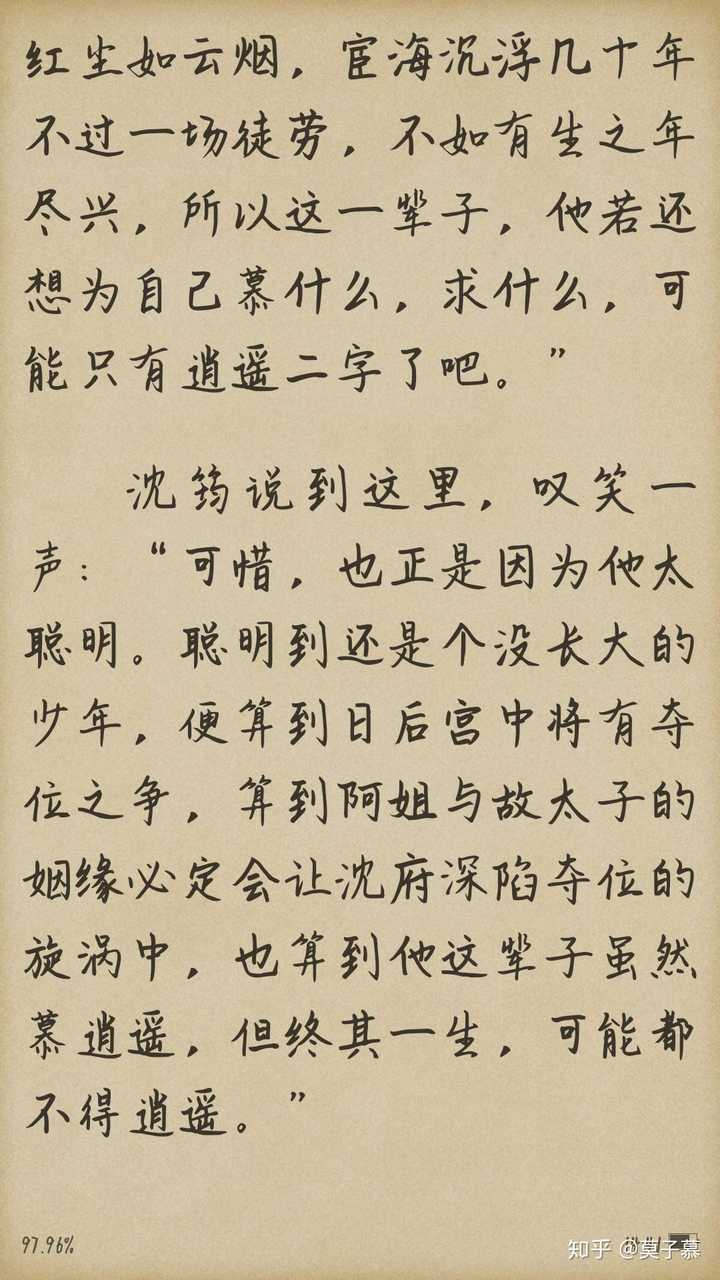 红尘如云烟，宦海沉浮几十年
不过一场徒劳，不如有生之年
尽兴，所以这一辈子，他若还
想为自己慕什么，求什么，可
能只有逍遥二字了吧。”
沈筠说到这里，叹笑一
声：“可惜，也正是因为他太
聪明。聪明到还是个没长大的
少年，便算到日后宫中将有夺
位之争，算到阿姐与故太子的
姻缘必定会让沈府深陷夺位的
旋涡中，也算到他这辈子虽然
慕逍遥，但终其一生，可能都
不得逍遥。”
97.96%
知乎 @莫子慕